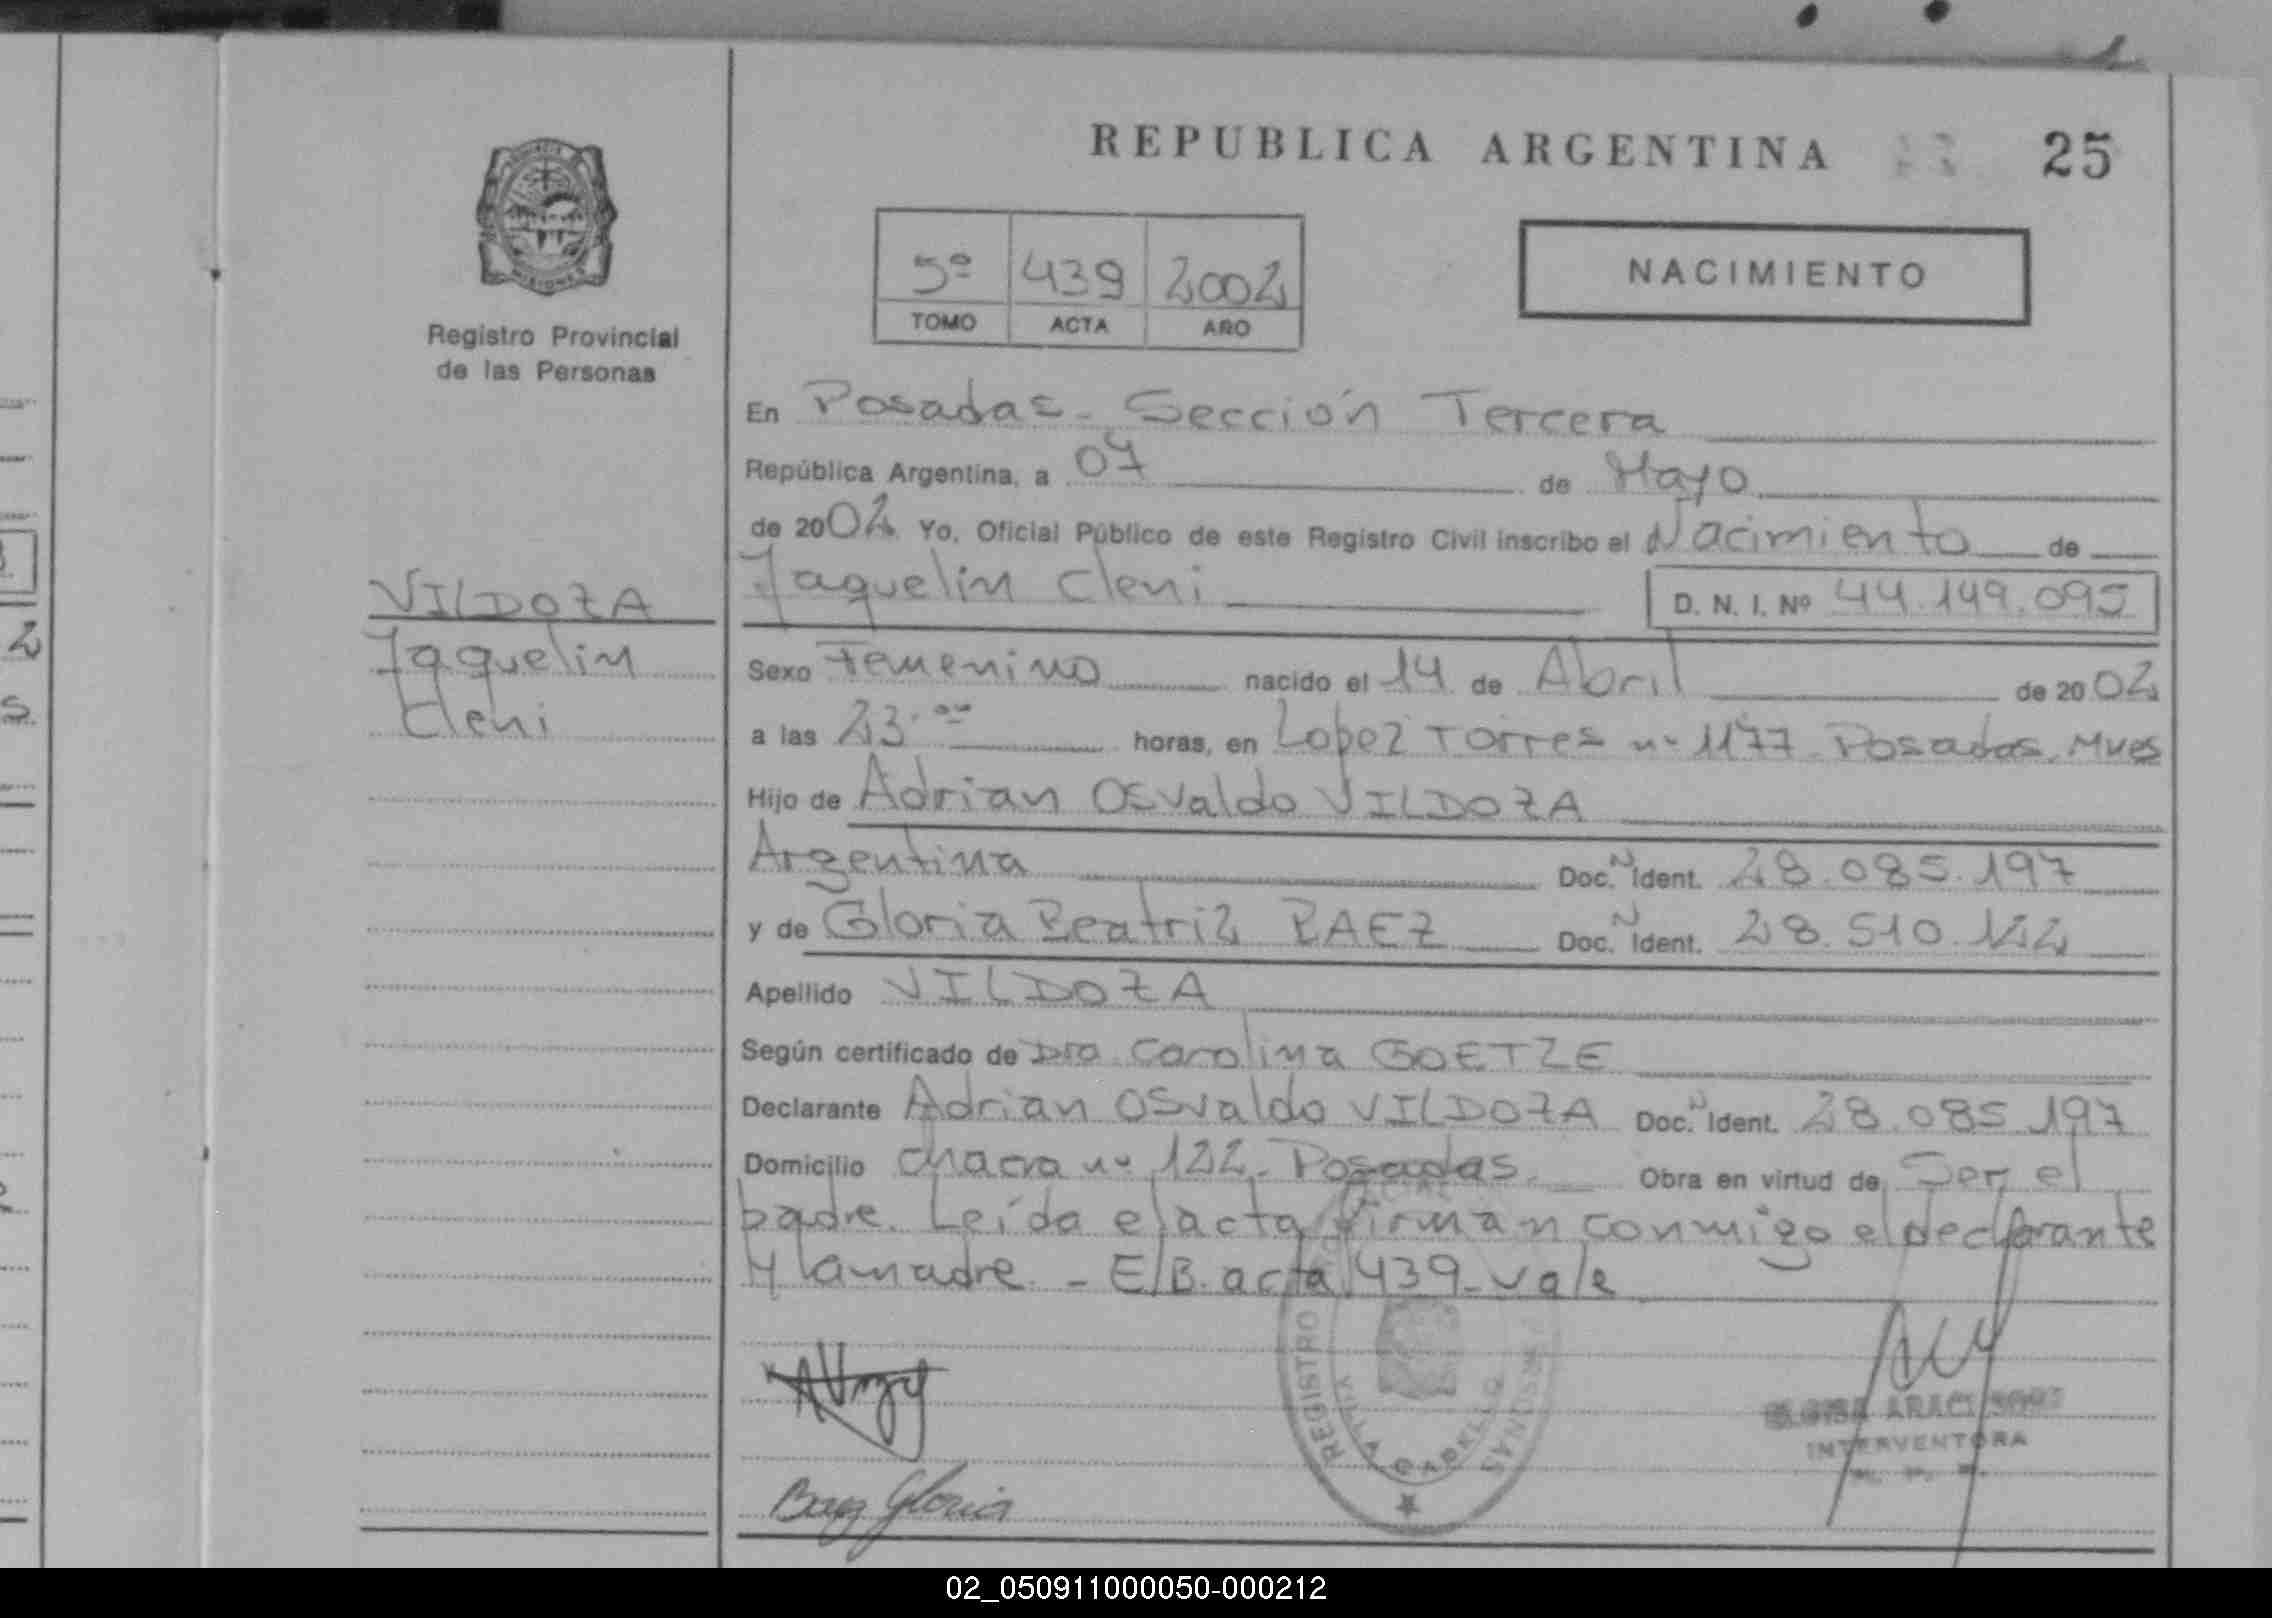 REPUBLICA ARGENTINA
25
NACIMIENTO
5º 439 2002
TOMO ACTA AÑO
Registro Provincial
de las Personas
VILDOZA
Jaquelin
Cleni
En Posadas - Sección Tercera
República Argentina, a 07 de Mayo
de 2002 Yo, Oficial Público de este Registro Civil inscribo el Nacimiento de
Jaquelin Cleni D. N. I. Nº 44.149.095
Sexo Femenino nacido el 14 de Abril de 2002
a las 23.ºº horas, en Lopez Torres nº 1177 Posadas, Mnes
Hijo de Adrian Osvaldo VILDOZA
Argentina Doc. N Ident. 28.085.197
y de Gloria Beatriz BAEZ Doc. N Ident. 28.510.122
Apellido VILDOZA
Según certificado de Dra. Carolina GOETZE
Declarante Adrian Osvaldo VILDOZA Doc. N Ident. 28.085.197
Domicilio chacra nº 122 - Posadas. Obra en virtud de Ser el
padre. Leída el acta firman conmigo el declarante
y la madre. - E/B. acta 439 - vale
REGISTRO PERSONAS
VILLA CABELLO
INTERVENTORA
Baez Gloria
02_050911000050-000212